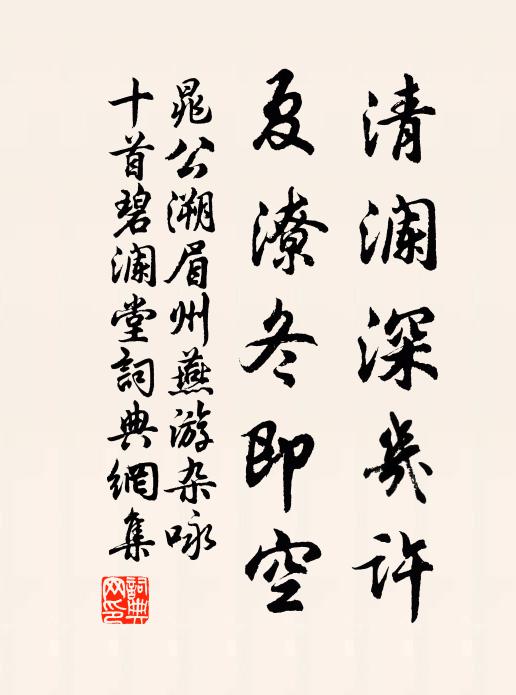 清澜深几许
夏潦冬即空
晁公溯眉州燕游杂咏
十首碧澜堂詞典網集
詞典网印